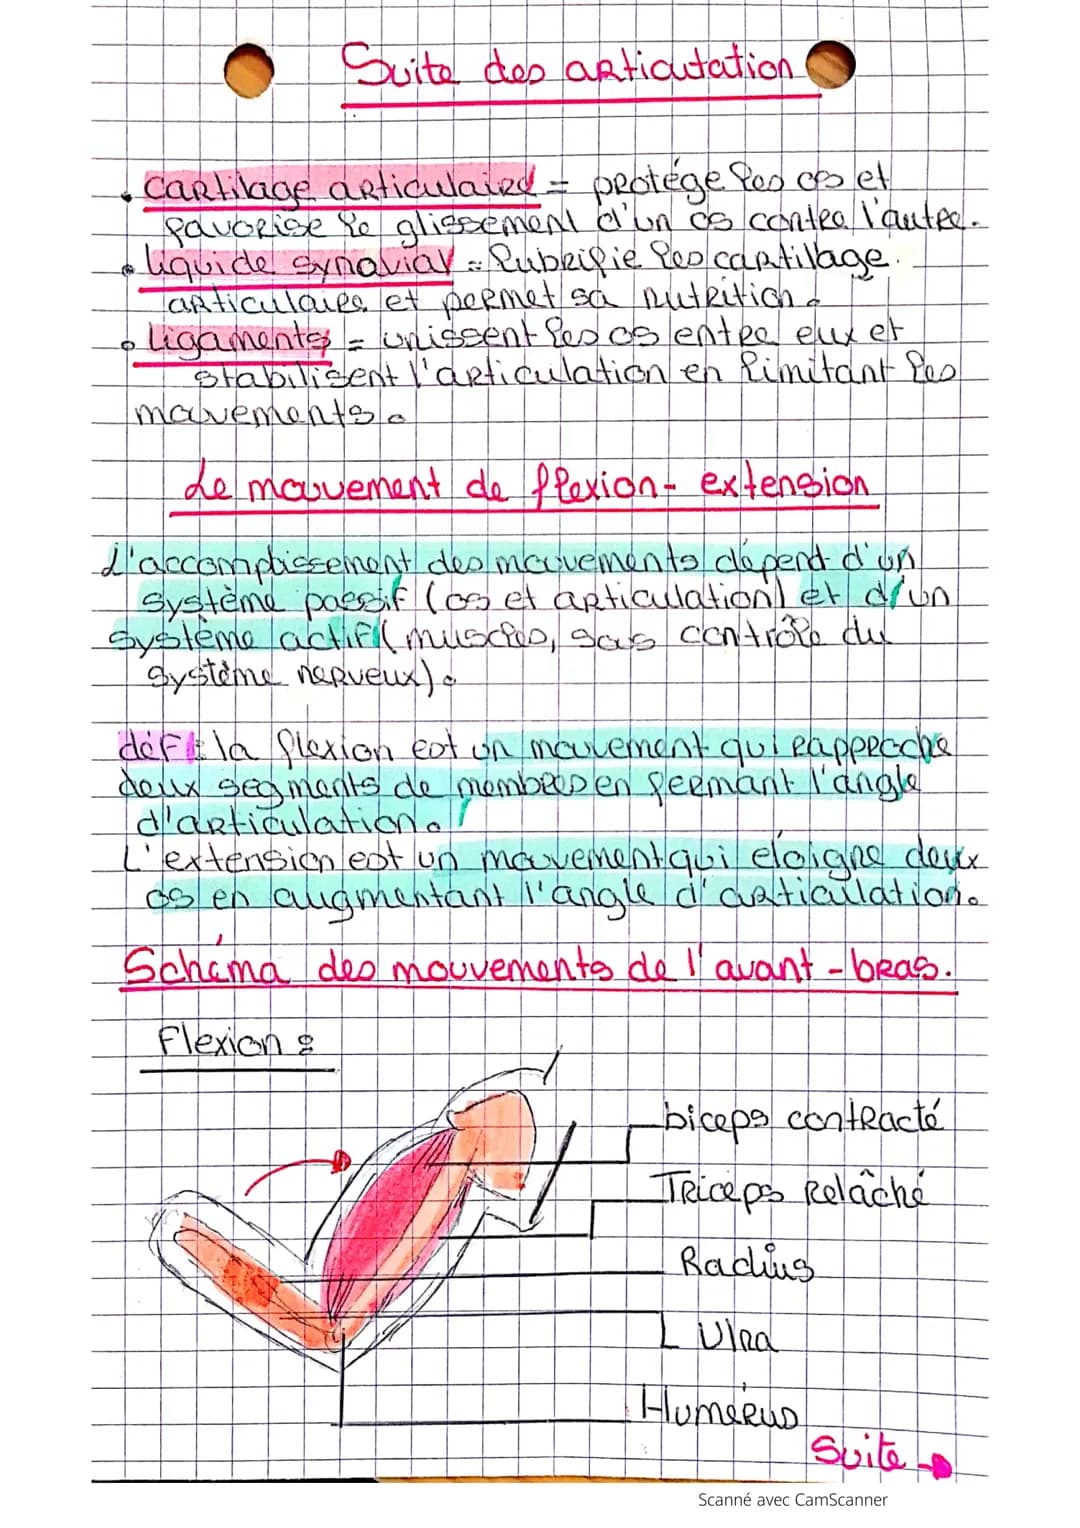 Suite des articutation
• Cartilage articulaire = protége les os et
favorise le glissement d'un os contre l'autre.
• liquide synovial = lubrifie les cartillage
articulaire et permet sa nutrition.
• ligaments = unissent les os entre eux et
stabilisent l'articulation en limitant les
mouvements.
Le mouvement de flexion - extension
L'accomplissement des mouvements dépend d'un
système passif (os et articulation) et d'un
système actif (muscles, sous contrôle du
système nerveux).
déf: la flexion est un mouvement qui rapproche
deux segments de membres en fermant l'angle
d'articulation.
L'extension est un mouvement qui éloigne deux
os en augmentant l'angle d'articulation.
Schéma des mouvements de l'avant-bras.
Flexion :
biceps contracté
Triceps Relâché
Radius
Ulna
Humérus
Suite →
Scanné avec CamScanner